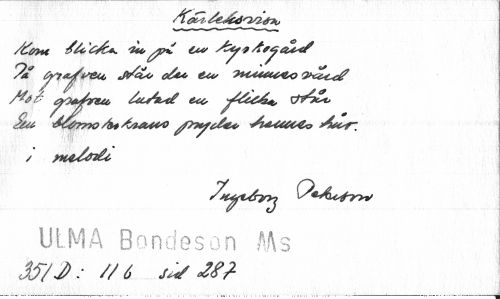 Kärleksvisa
Kom blicka in på en kyrkogård
På grafven står der en minnesvård
Mot grafven lutad en flicka står
En blomsterkrans pryder hennes hår.
i melodi
Ingeborg
ULMA Bondeson Ms
351 D: 116 sid 287